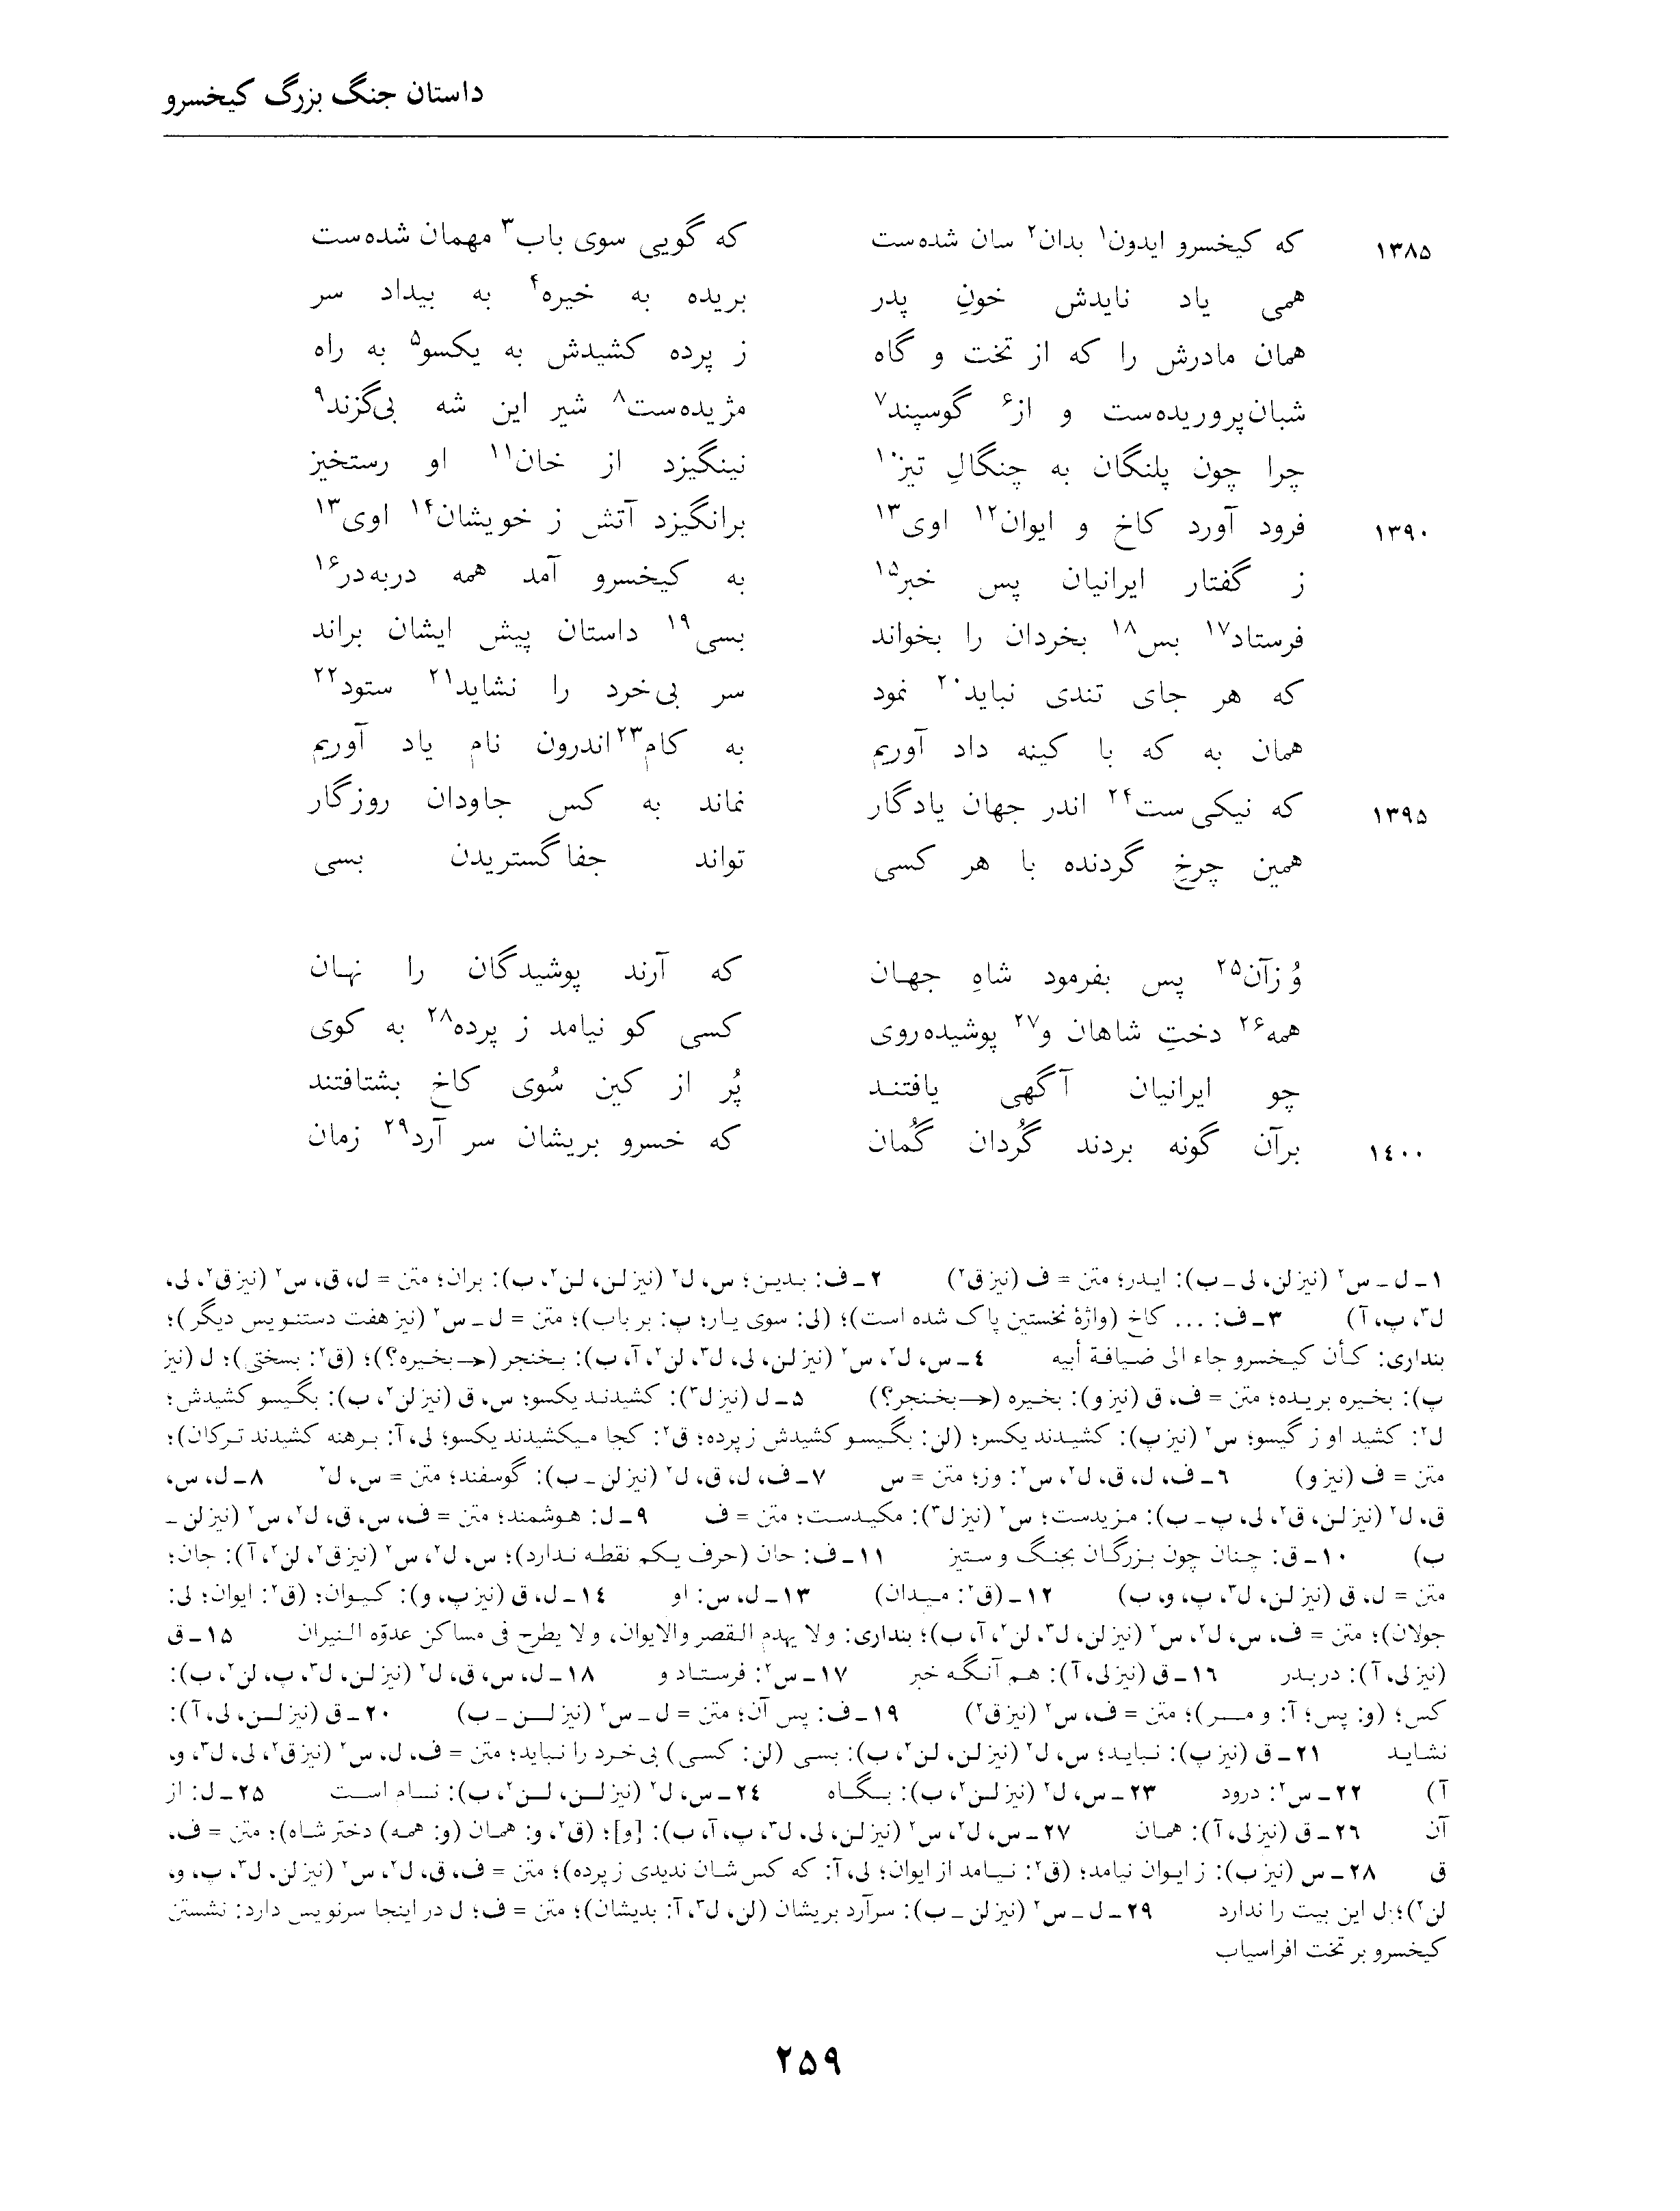 داستان جنگ بزرگ کیخسرو
۱۳۸۵ که کیخسرو ایدون۱ بدان۲ سان شده‌ست که گویی سوی باب۳ مهمان شده‌ست
همی یاد نایدش خونِ پدر بریده به خیره۴ به بیداد سر
همان مادرش را که از تخت و گاه ز پرده کشیدش به یکسو۵ به راه
شبان‌پروریده‌ست و از۶ گوسپند۷ مژیده‌ست۸ شیر این شه بی‌گزند۹
چرا چون پلنگان به چنگالِ تیز۱۰ نینگیزد از خان۱۱ او رستخیز
۱۳۹۰ فرود آورد کاخ و ایوان۱۲ اوی۱۳ برانگیزد آتش ز خویشان۱۴ اوی۱۳
ز گفتار ایرانیان پس خبر۱۵ به کیخسرو آمد همه دربه‌در۱۶
فرستاد۱۷ بس۱۸ بخردان را بخواند بسی۱۹ داستان پیش ایشان براند
که هر جای تندی نباید۲۰ نمود سر بی‌خرد را نشاید۲۱ ستود۲۲
همان به که با کینه داد آوریم به کام۲۳ اندرون نام یاد آوریم
۱۳۹۵ که نیکی‌ست۲۴ اندر جهان یادگار نماند به کس جاودان روزگار
همین چرخِ گردنده با هر کسی تواند جفا گستریدن بسی
وُ زآن۲۵ پس بفرمود شاهِ جهان که آرند پوشیدگان را نهان
همه۲۶ دختِ شاهان و۲۷ پوشیده‌روی کسی کو نیامد ز پرده۲۸ به کوی
چو ایرانیان آگهی یافتند پُر از کین سُوی کاخ بشتافتند
۱٤۰۰ برآن گونه بردند گُردان گُمان که خسرو بریشان سر آرد۲۹ زمان
۱ـ ل ـ س۲ (نیز لن، لی ـ ب): ایدر؛ متن = ف (نیز ق۲) ۲ـ ف: بدین؛ س، ل۲ (نیز لن، لن۲، ب): بران؛ متن = ل، ق، س۲ (نیز ق۲، لی،
ل۳، پ، آ) ۳ـ ف: ... کاخ (واژهٔ نخستین پاک شده است)؛ (لی: سوی یار؛ پ: بر باب)؛ متن = ل ـ س۲ (نیز هفت دستنویس دیگر)؛
بنداری: کأن کیخسرو جاء الی ضیافة أبیه ٤ـ س، ل۲، س۲ (نیز لن، لی، ل۳، لن۲، آ، ب): بخنجر (←بخیره؟)؛ (ق۲: بسختی)؛ ل (نیز
پ): بخیره بریده؛ متن = ف، ق (نیز و): بخیره (←بخنجر؟) ۵ـ ل (نیز ل۳): کشیدند یکسو؛ س، ق (نیز لن۲، ب): بگیسو کشیدش؛
ل۲: کشید او ز گیسو؛ س۲ (نیز پ): کشیدند یکسر؛ (لن: بگیسو کشیدش ز پرده؛ ق۲: کجا میکشیدند یکسو؛ لی، آ: برهنه کشیدند ترکان)؛
متن = ف (نیز و) ٦ـ ف، ل، ق، ل۲، س۲: وز؛ متن = س ۷ـ ف، ل، ق، ل۲ (نیز لن ـ ب): گوسفند؛ متن = س، ل۲ ۸ـ ل، س،
ق، ل۲ (نیز لن، ق۲، لی، پ ـ ب): مزیدست؛ س۲ (نیز ل۳): مکیدست؛ متن = ف ۹ـ ل: هوشمند؛ متن = ف، س، ق، ل۲، س۲ (نیز لن ـ
ب) ۱۰ـ ق: چنان چون بزرگان بجنگ و ستیز ۱۱ـ ف: حان (حرف یکم نقطه ندارد)؛ س، ل۲، س۲ (نیز ق۲، لن۲، آ): جان؛
متن = ل، ق (نیز لن، ل۳، پ، و، ب) ۱۲ـ (ق۲: میدان) ۱۳ـ ل، س: او ۱٤ـ ل، ق (نیز پ، و): کیوان؛ (ق۲: ایوان؛ لی:
جولان)؛ متن = ف، س، ل۲، س۲ (نیز لن، ل۳، لن۲، آ، ب)؛ بنداری: ولا یهدم القصر والایوان، ولا یطرح فی مساکن عدوّه النیران ۱۵ـ ق
(نیز لی، آ): دربدر ۱٦ـ ق (نیز لی، آ): هم آنگه خبر ۱۷ـ س۲: فرستاد و ۱۸ـ ل، س، ق، ل۲ (نیز لن، ل۳، پ، لن۲، ب):
کس؛ (و: پس؛ آ: و مر)؛ متن = ف، س۲ (نیز ق۲) ۱۹ـ ف: پس آن؛ متن = ل ـ س۲ (نیز لن ـ ب) ۲۰ـ ق (نیز لن، لی، آ):
نشاید ۲۱ـ ق (نیز پ): نباید؛ س، ل۲ (نیز لن، لن۲، ب): بسی (لن: کسی) بی‌خرد را نباید؛ متن = ف، ل، س۲ (نیز ق۲، لی، ل۳، و،
آ) ۲۲ـ س۲: درود ۲۳ـ س، ل۲ (نیز لن۲، ب): بگاه ۲٤ـ س، ل۲ (نیز لن، لن۲، ب): نام است ۲۵ـ ل: از
آن ۲٦ـ ق (نیز لی، آ): همان ۲۷ـ س، ل۲، س۲ (نیز لن، لی، ل۳، پ، آ، ب): [و]؛ (ق۲، و: همان (و: همه) دختر شاه)؛ متن = ف،
ق ۲۸ـ س (نیز ب): ز ایوان نیامد؛ (ق۲: نیامد از ایوان؛ لی، آ: که کس شان ندیدی ز پرده)؛ متن = ف، ق، ل۲، س۲ (نیز لن، ل۳، پ، و،
لن۲)؛ ل این بیت را ندارد ۲۹ـ ل ـ س۲ (نیز لن ـ ب): سرآرد بریشان (لن، ل۳، آ: بدیشان)؛ متن = ف؛ ل در اینجا سرنویس دارد: نشستن
کیخسرو بر تخت افراسیاب
۲۵۹